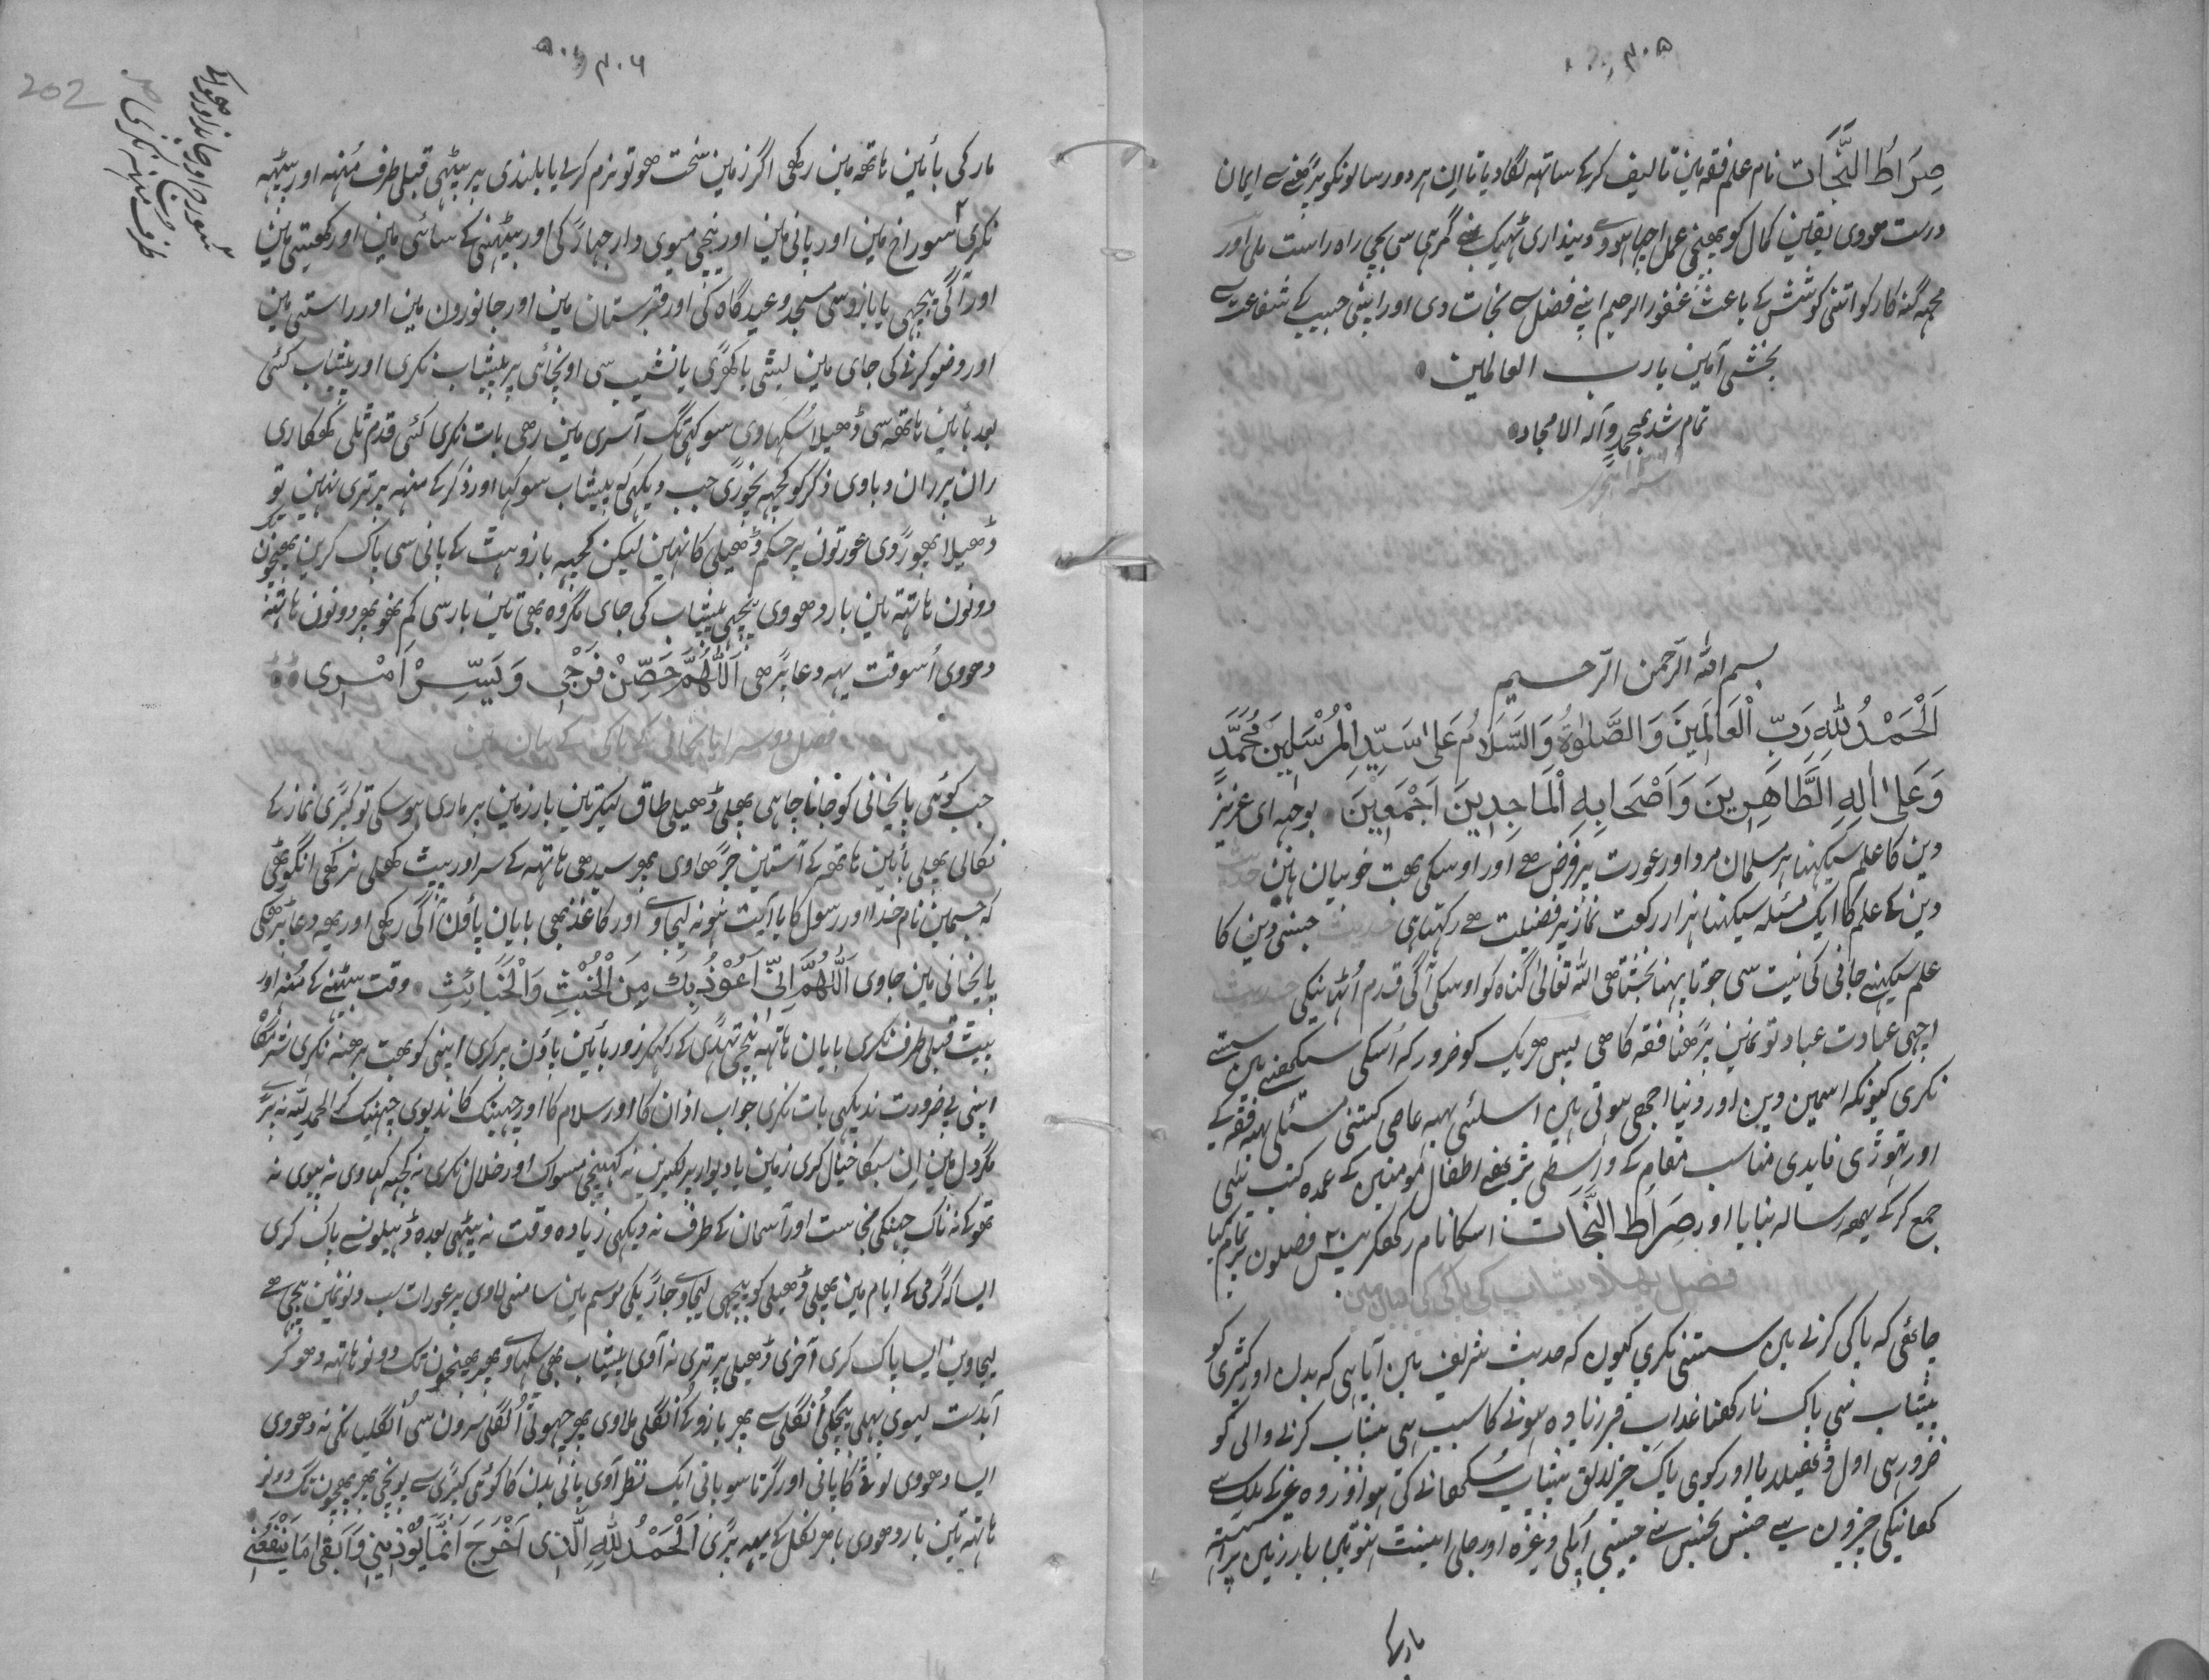 ۴۰۵
صِرَاطُ النَّجَات نام علم فقہ مین تالیف کرکے ساتہہ لگا دیا تا اِن ہر دو رسالونکو پڑھنے سے ایمان
درست هووی یقین کمال کو پہنچی عمل اچہا ہووے دینداری ٹہیک بنے گمرہی سی بچی راہ راست ملی اور
مجہہ گنہ کار کو اتنی کوشش کے باعث غفور الرحیم اپنے فضل سے نجات دی اور اپنی حبیب کے شفاعت سے
بخشی آمین یا رب العالمین
تمام شد بمحمد وآلہ الامجاد
بسم الله الرحمن الرحیم
اَلْحَمْدُ لِلّٰهِ رَبِّ الْعَالَمِینَ وَالصَّلٰوةُ وَالسَّلَامُ عَلٰی سَیِّدِ الْمُرْسَلِینَ مُحَمَّدٍ
وَعَلٰی اٰلِهِ الطَّاهِرِینَ وَاَصْحَابِهِ الْمَاجِدِینَ اَجْمَعِینَ بوجہہ ای عزیز
دین کا علم سیکہنا ہر مسلمان مرد اور عورت پر فرض هے اور اوسکی بهت خوبیان ہین حدیث
دین کے علم کا ایک مسئلہ سیکہنا ہزار رکعت نماز پر فضیلت هے رکہتا ہی حدیث جسنی دین کا
علم سیکہنے جانی کی نیت سی جوتا پہنا بخشتا هی اللہ تعالیٰ گناہ کو اوسکی آگی قدم اُٹہانیکی حدیث
اچہی عبادت عباد تو نمین پڑھنا فقہ کا هی پس هر یک کو ضرور کہ اُسکی سیکهنے مین سستے
نکری کیونکہ اسمین دین اور دنیا اچهی ہوتی ہین اسلئی یہہ عاصی کتنی مسئلی یہہ فقہ کے
اور تهوڑی فایدی مناسب مقام کے واسطی پڑهنے اطفال مومنین کے عمدہ کتب سی
جمع کرکے یهہ رسالہ بنایا اور صِرَاطُ النَّجَات اسکا نام رکهکر بیس ۲۰ فصلون پر تمام کیا
فصل پهلا پیشاب کی پاکی کی بیان مین
چاهئی کہ پاکی کرنے مین سستی نکری کیون کہ حدیث شریف مین آیا ہی کہ بدن اور کپڑی کو
پیشاب سی پاک نا رکهنا عذاب قبر زیادہ ہونے کا سبب ہی پیشاب کرنے والی کو
ضرور ہی اول ڈهیلا یا اور کوی پاک چیز لایق پیشاب سکهانے کی ہو اور وہ غیر کے ملک سے
کهانیکی چیزون سے جنس نجس سے جیسی آپلی وغیرہ اور جلی اینٹ نہو تین بار زمین پر آہستہ
مار کے
۴۰۶
202
مار کی بائین ہاتهہ مین رکهی اگر زمین سخت هو تو نرم کرے یا بلندی پر بیٹہی قبلی طرف مُنہہ اور پیٹہہ
نکری سوراخ مین اور پانی مین اور نیچی میوی دار جهاڑ کی اور بیٹہنی کے سائی مین اور کهیتی مین
اور آگی پیچهی یا بازو سی مسجد و عیدگاہ کی اور قبرستان مین اور جانورون مین اور راستی مین
اور وضو کرنے کی جای مین لیٹی یا کهڑی یا نشیب سی اونچائی پر پیشاب نکری اور پیشاب کئی
بعد بائین ہاتهہ سی ڈهیلا سُکہاوی سوکہتی تگ آسری مین رهی بات نکری کئی قدم ٹلی کهنکاری
ران پر ران دباوی ذکر کو کچہہ نچوڑی جب دیکہی کہ پیشاب سوکہا اور ذکر کے منہہ پر تری نہین تو
ڈهیلا چهوڑوی عورتون پر حکم ڈهیلی کا نہین لیکن کچہہ بازو ہٹ کے پانی سی پاک کرین پہنچون تک
دونون ہاتہہ تین بار دهووی پیچهی پیشاب کی جای مگر وہ بهی تین بار سی کم نهو پهر دونون ہاتہہ
دهووی اُسوقت یهہ دعا پڑهی اَللّٰهُمَّ حَصِّنْ فَرْجِی وَیَسِّرْ اَمْرِی
فصل دوسرا پایخانی کی پاکی کے بیان مین
جب کوئی پایخانی کو جانا چاہی پهلی ڈهیلی طاق لیکر تین بار زمین پر ماری ہوسکی تو کپڑی نماز کے
نکالی پهلی بائین ہاتهہ کے آستین چڑهاوی پهر سیدهی ہاتهہ کے سر اور پیٹ کهلی نرکهی انگوٹهی
کہ جسمین نام خدا اور رسول کا یا آیت ہو نہ لیجاوے اور کاغذ بهی بایان پاؤن آگی رکهی اور یهہ دعا پڑهکی
پایخانی مین جاوی اَللّٰهُمَّ اِنِّی اَعُوْذُ بِكَ مِنَ الْخُبْثِ وَالْخَبَائِثِ وقت بیٹہنے کے مُنہ اور
پیٹ قبلی طرف نکری بایان ہاتہہ نیچی تہڈی کے رکہکر زور بائین پاؤن پر کری اپنی کو بهت برهنہ نکری شرمگاہ
اپنی بی ضرورت ندیکہی بات نکری جواب اذان کا اور سلام کا اور چہینک کا ندیوی چہینک کر الحمد للہ نہ پڑے
مگر دل مین اِن سبکا خیال کری زمین یا دیوار پر لکیرین نہ کہینچی مسواک اور خلال نکری نہ کچہہ کہاوی نہ پیوی نہ
تهوکے نہ ناک چہنکی نجاست اور آسمان کے طرف نہ دیکہی زیادہ وقت نہ بیٹہی بعدہ ڈهیلونسے پاک کری
ایسا کہ گرمی کے ایام مین پهلی ڈهیلی کو پیچهی لیجاوے جاڑیکی موسم مین سامنی لاوی پر عورات سب دنونمین پیچهی سے
لیجاوین ایسا پاک کری آخری ڈهیلی پر تری نہ آوی پیشاب بهی سکہاوے پهر پهنچون تک دونو ہاتہہ دهو کر
آبدست لیوی پہلی بیچکی اُنگلی سے پهر بازو کے اُنگلی ملاوی پهر چهوٹی اُنگلی سرون سی اُنگلیانکی نہ دهووی
ایسا دهووی لوٹی کا پانی اور گرتا سو پانی ایک نظر آوی پانی بدن کا کوئی کپڑی سے پونچی پهر پهنچون تگ دونو
ہاتہہ تین بار دهووی باهر نکل کے یهہ پڑی اَلْحَمْدُ لِلّٰهِ الَّذِی اَخْرَجَ اَنَّمَا یُوْذِیْنِی وَاَبْقٰی مَا یَنْفَعُنِی